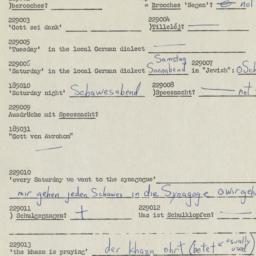 229003 229004
'Gott sei dank' )Tillelòj?
229005
'Tuesday' in the local German dialect
Samstag
229006 229007
'Saturday' in the local German dialect Sonnabend in "Jewish":
185010 229008
'Saturday night' Schawesabend )Spessnacht? not
229009
Ausdrücke mit Spessnacht?
185031
"Gott von Avrohom"
229010
'every Saturday we went to the synagogue'
mir gehen jeden Schawes in die Synagoge
229011 229012
) Schulgesungen? + Was ist Schulklopfen? —
229013
'the khazn is praying' der khazn ohrt (betet usually